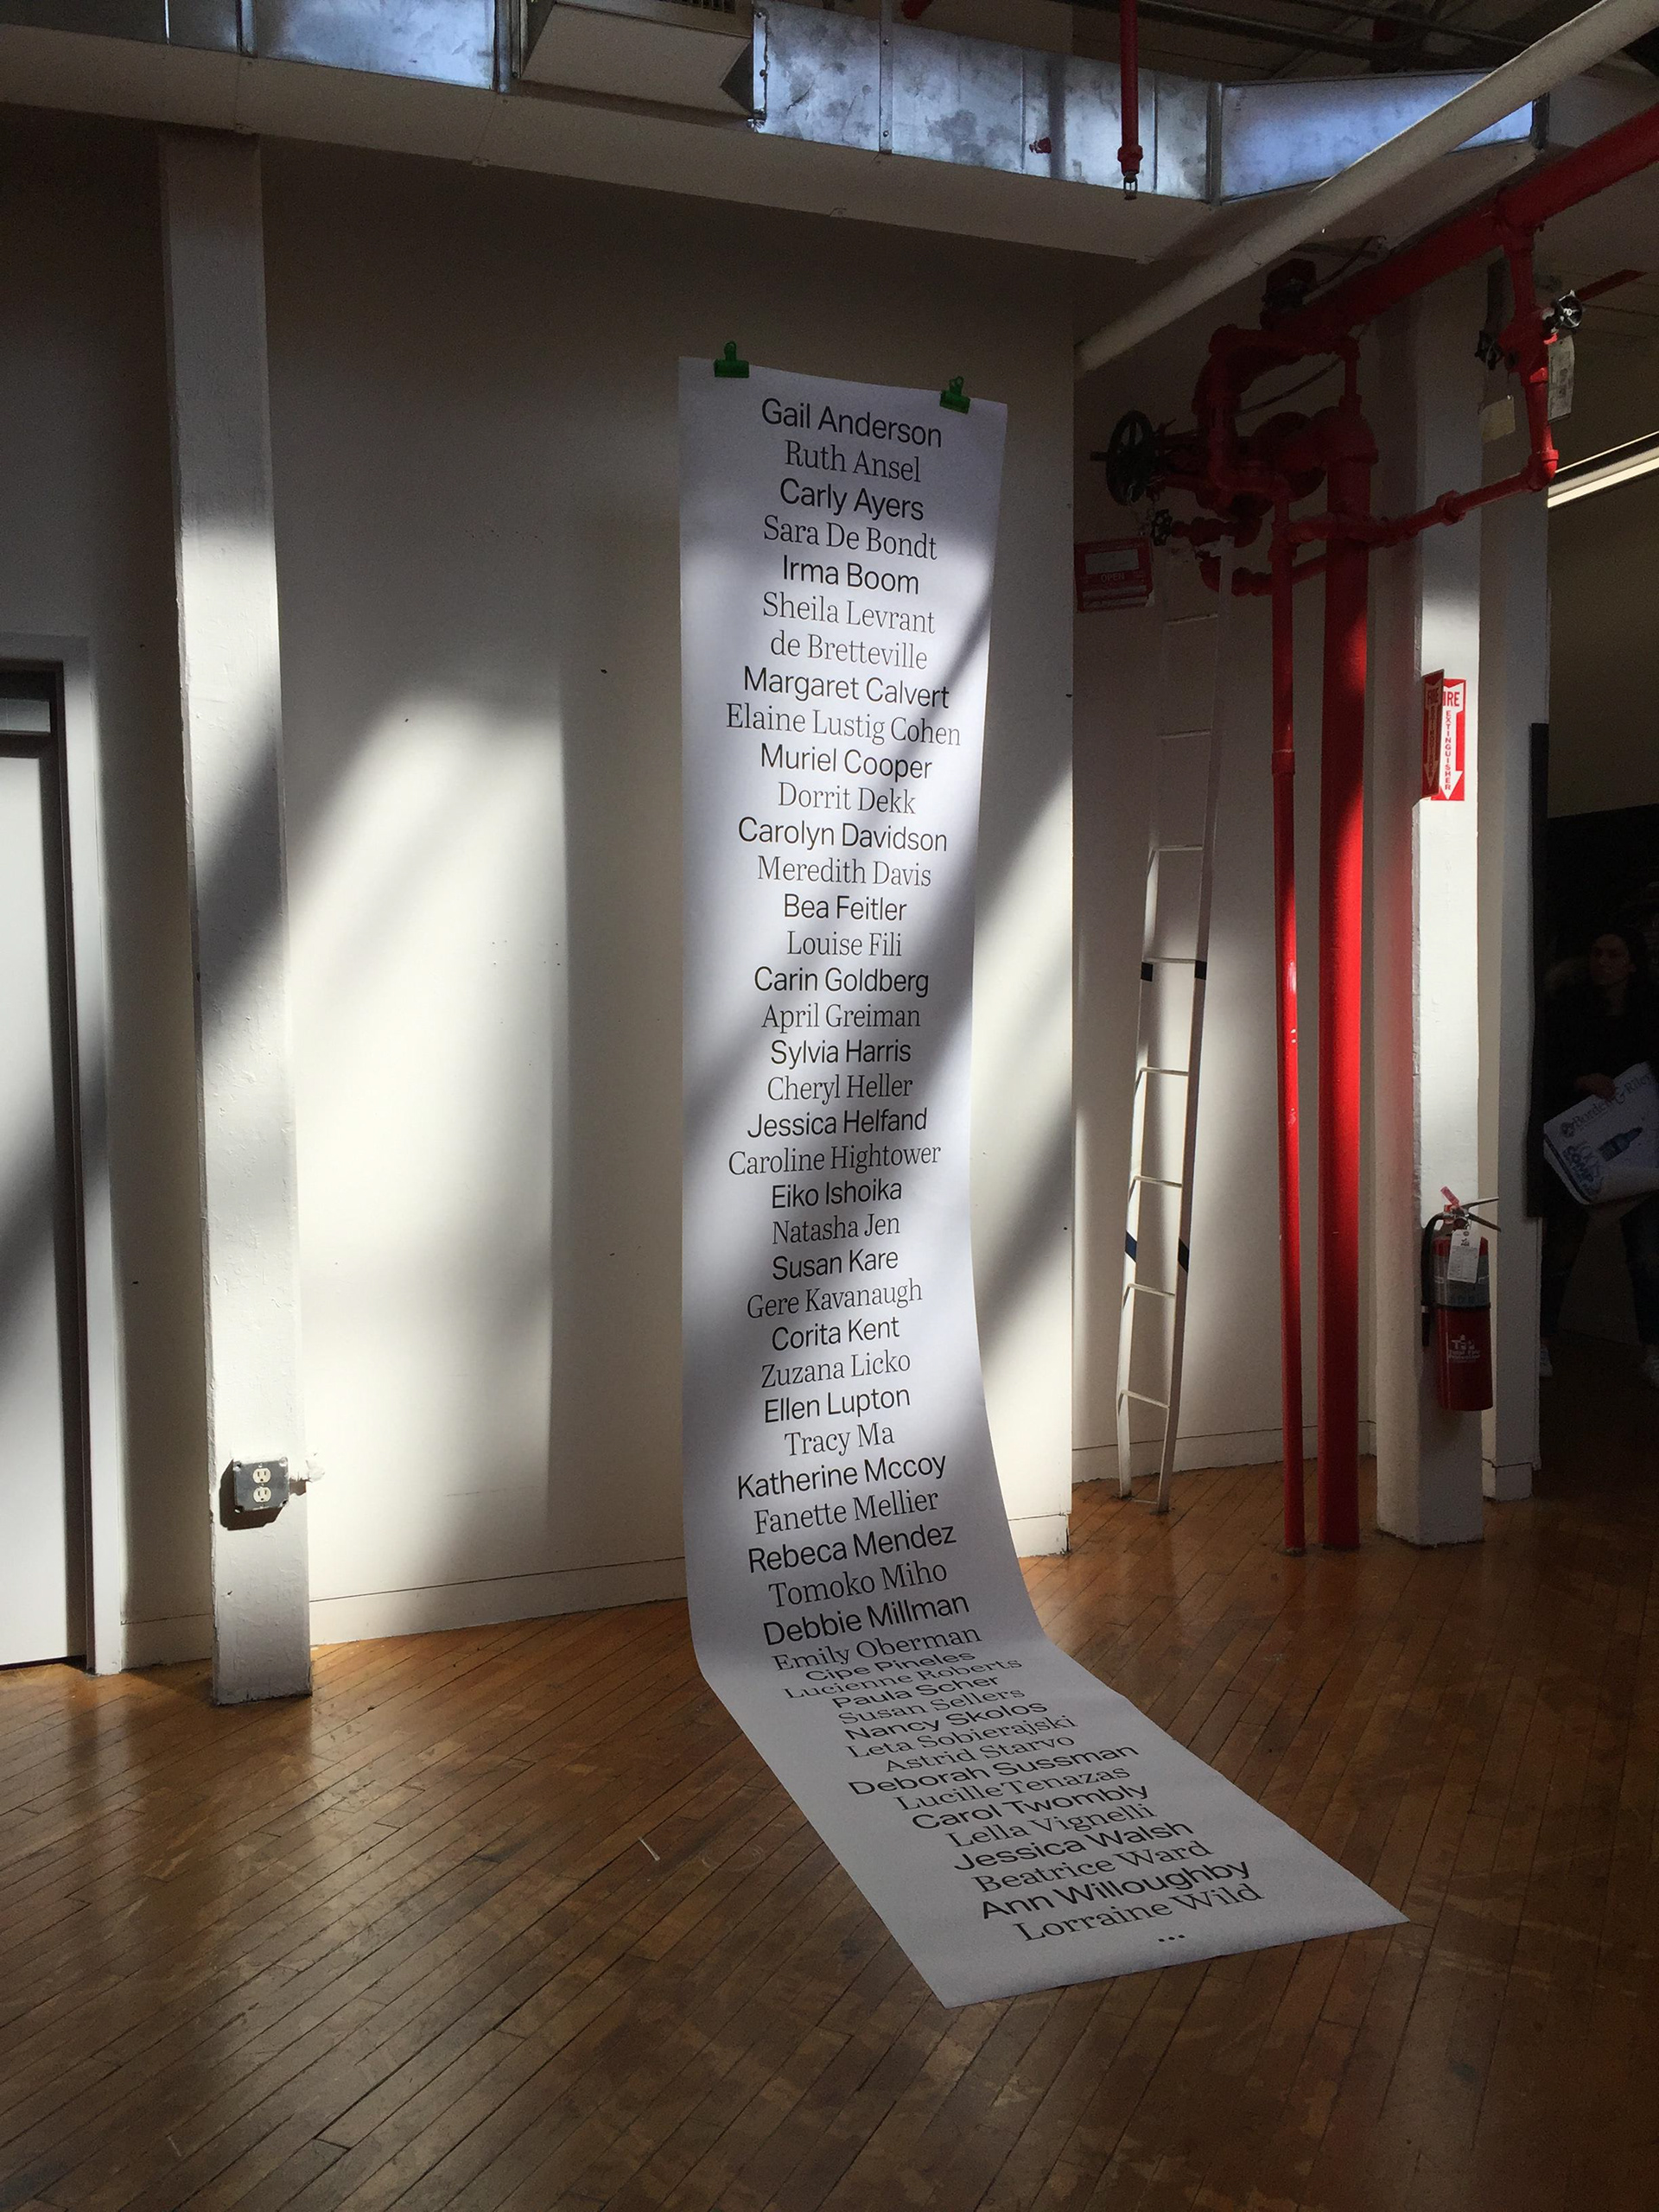 Gail Anderson
Ruth Ansel
Carly Ayers
Sara De Bondt
Irma Boom
Sheila Levrant
de Bretteville
Margaret Calvert
Elaine Lustig Cohen
Muriel Cooper
Dorrit Dekk
Carolyn Davidson
Meredith Davis
Bea Feitler
Louise Fili
Carin Goldberg
April Greiman
Sylvia Harris
Cheryl Heller
Jessica Helfand
Caroline Hightower
Eiko Ishoika
Natasha Jen
Susan Kare
Gere Kavanaugh
Corita Kent
Zuzana Licko
Ellen Lupton
Tracy Ma
Katherine Mccoy
Fanette Mellier
Rebeca Mendez
Tomoko Miho
Debbie Millman
Emily Oberman
Cipe Pineles
Lucienne Roberts
Paula Scher
Susan Sellers
Nancy Skolos
Leta Sobierajski
Astrid Starvo
Deborah Sussman
Lucille Tenazas
Carol Twombly
Lella Vignelli
Jessica Walsh
Beatrice Ward
Ann Willoughby
Lorraine Wild
...
OPEN
FIRE
EXTINGUISHER
Borden & Riley